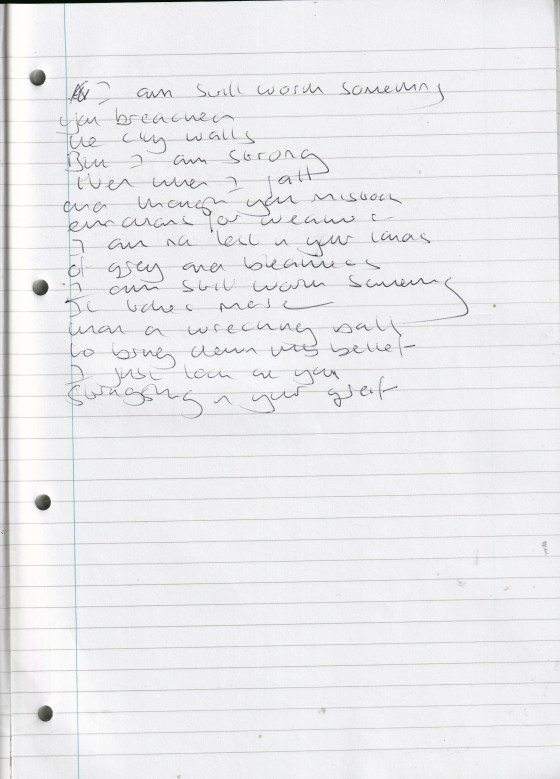 I am still worth something
you breached
the city walls
But I am strong
Even when I fall
and though you mistook
emotions for weakness
I am not lost in your lands
of grey and bleakness
I am still worth something
It takes more
than a wrecking ball
to bring down this belief
I just look at you
Swinging in your grief